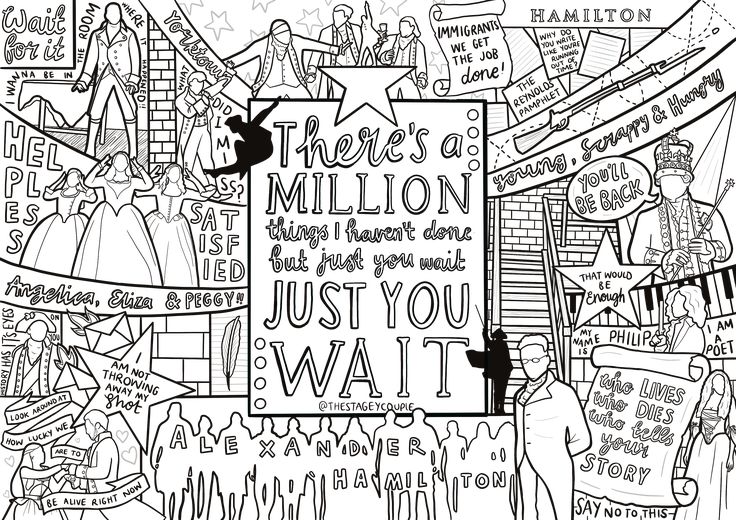 Wait
for it
I WANNA BE IN
THE ROOM
WHERE IT
HAPPENED!!
Yorktown
WHAT
DID
I
MISS?
IMMIGRANTS
WE GET
THE JOB
done!
HAMILTON
WHY DO YOU
WRITE LIKE
YOU'RE
RUNNING
OUT OF
TIME?
THE
REYNOLDS
PAMPHLET
Young, Scrappy & Hungry
HELPLESS
SATISFIED
Angelica, Eliza & PEGGY!!
There's a
MILLION
things I haven't done
but just you wait
JUST YOU
WAIT
@THESTAGEYCOUPLE
YOU'LL
BE BACK
THAT WOULD
BE
Enough
MY
NAME IS PHILIP
I AM
A
POET
HISTORY HAS ITS EYES
ON
YOU
I
AM NOT
THROWING
AWAY MY
Shot
LOOK AROUND AT
HOW LUCKY WE
ARE TO
BE ALIVE RIGHT NOW
ALEXANDER
HAMILTON
who LIVES
who DIES
who tells
your
STORY
SAY NO TO THIS